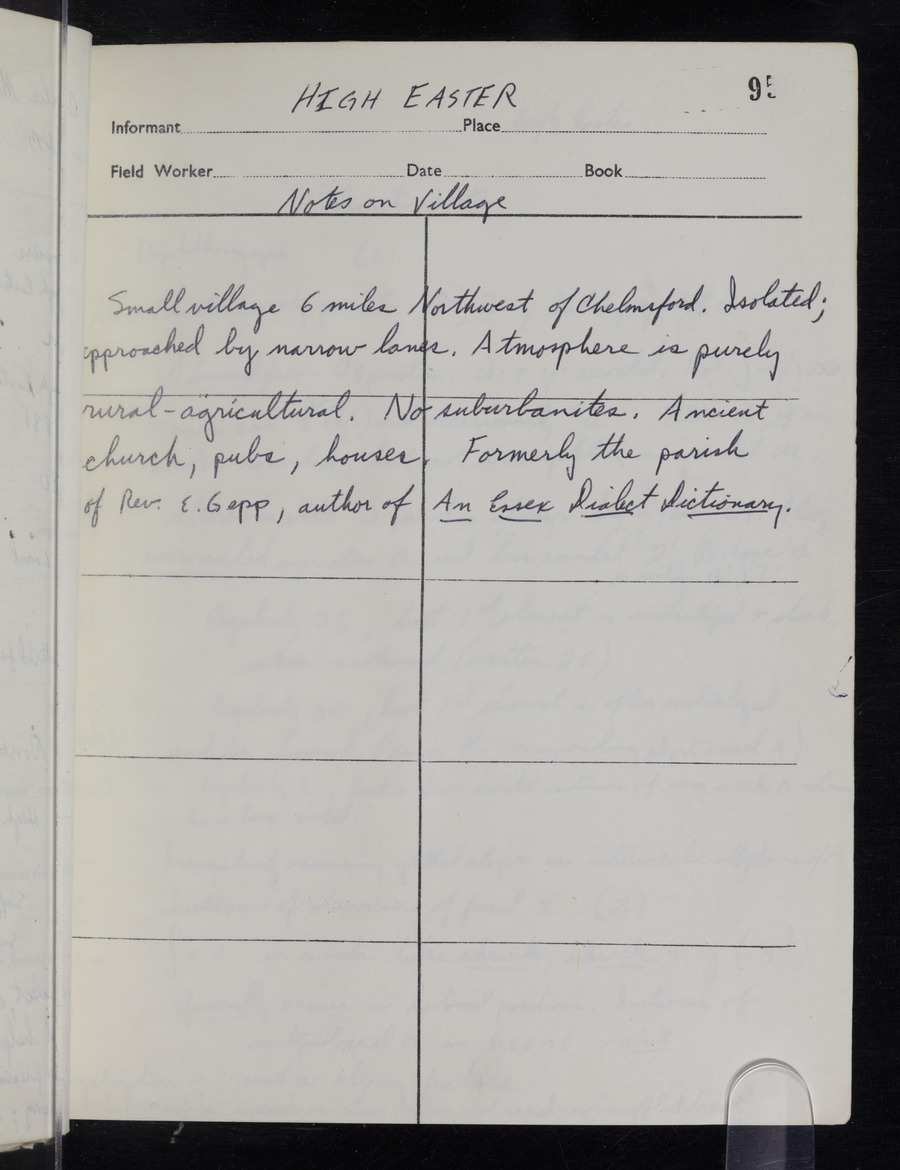 HIGH EASTER
95
Informant Place
Field Worker Date Book
Notes on Village
Small village 6 miles Northwest of Chelmsford. Isolated;
approached by narrow lanes. Atmosphere is purely
rural-agricultural. No suburbanites. Ancient
church, pubs, houses. Formerly the parish
of Rev. E. Gepp, author of An Essex Dialect Dictionary.